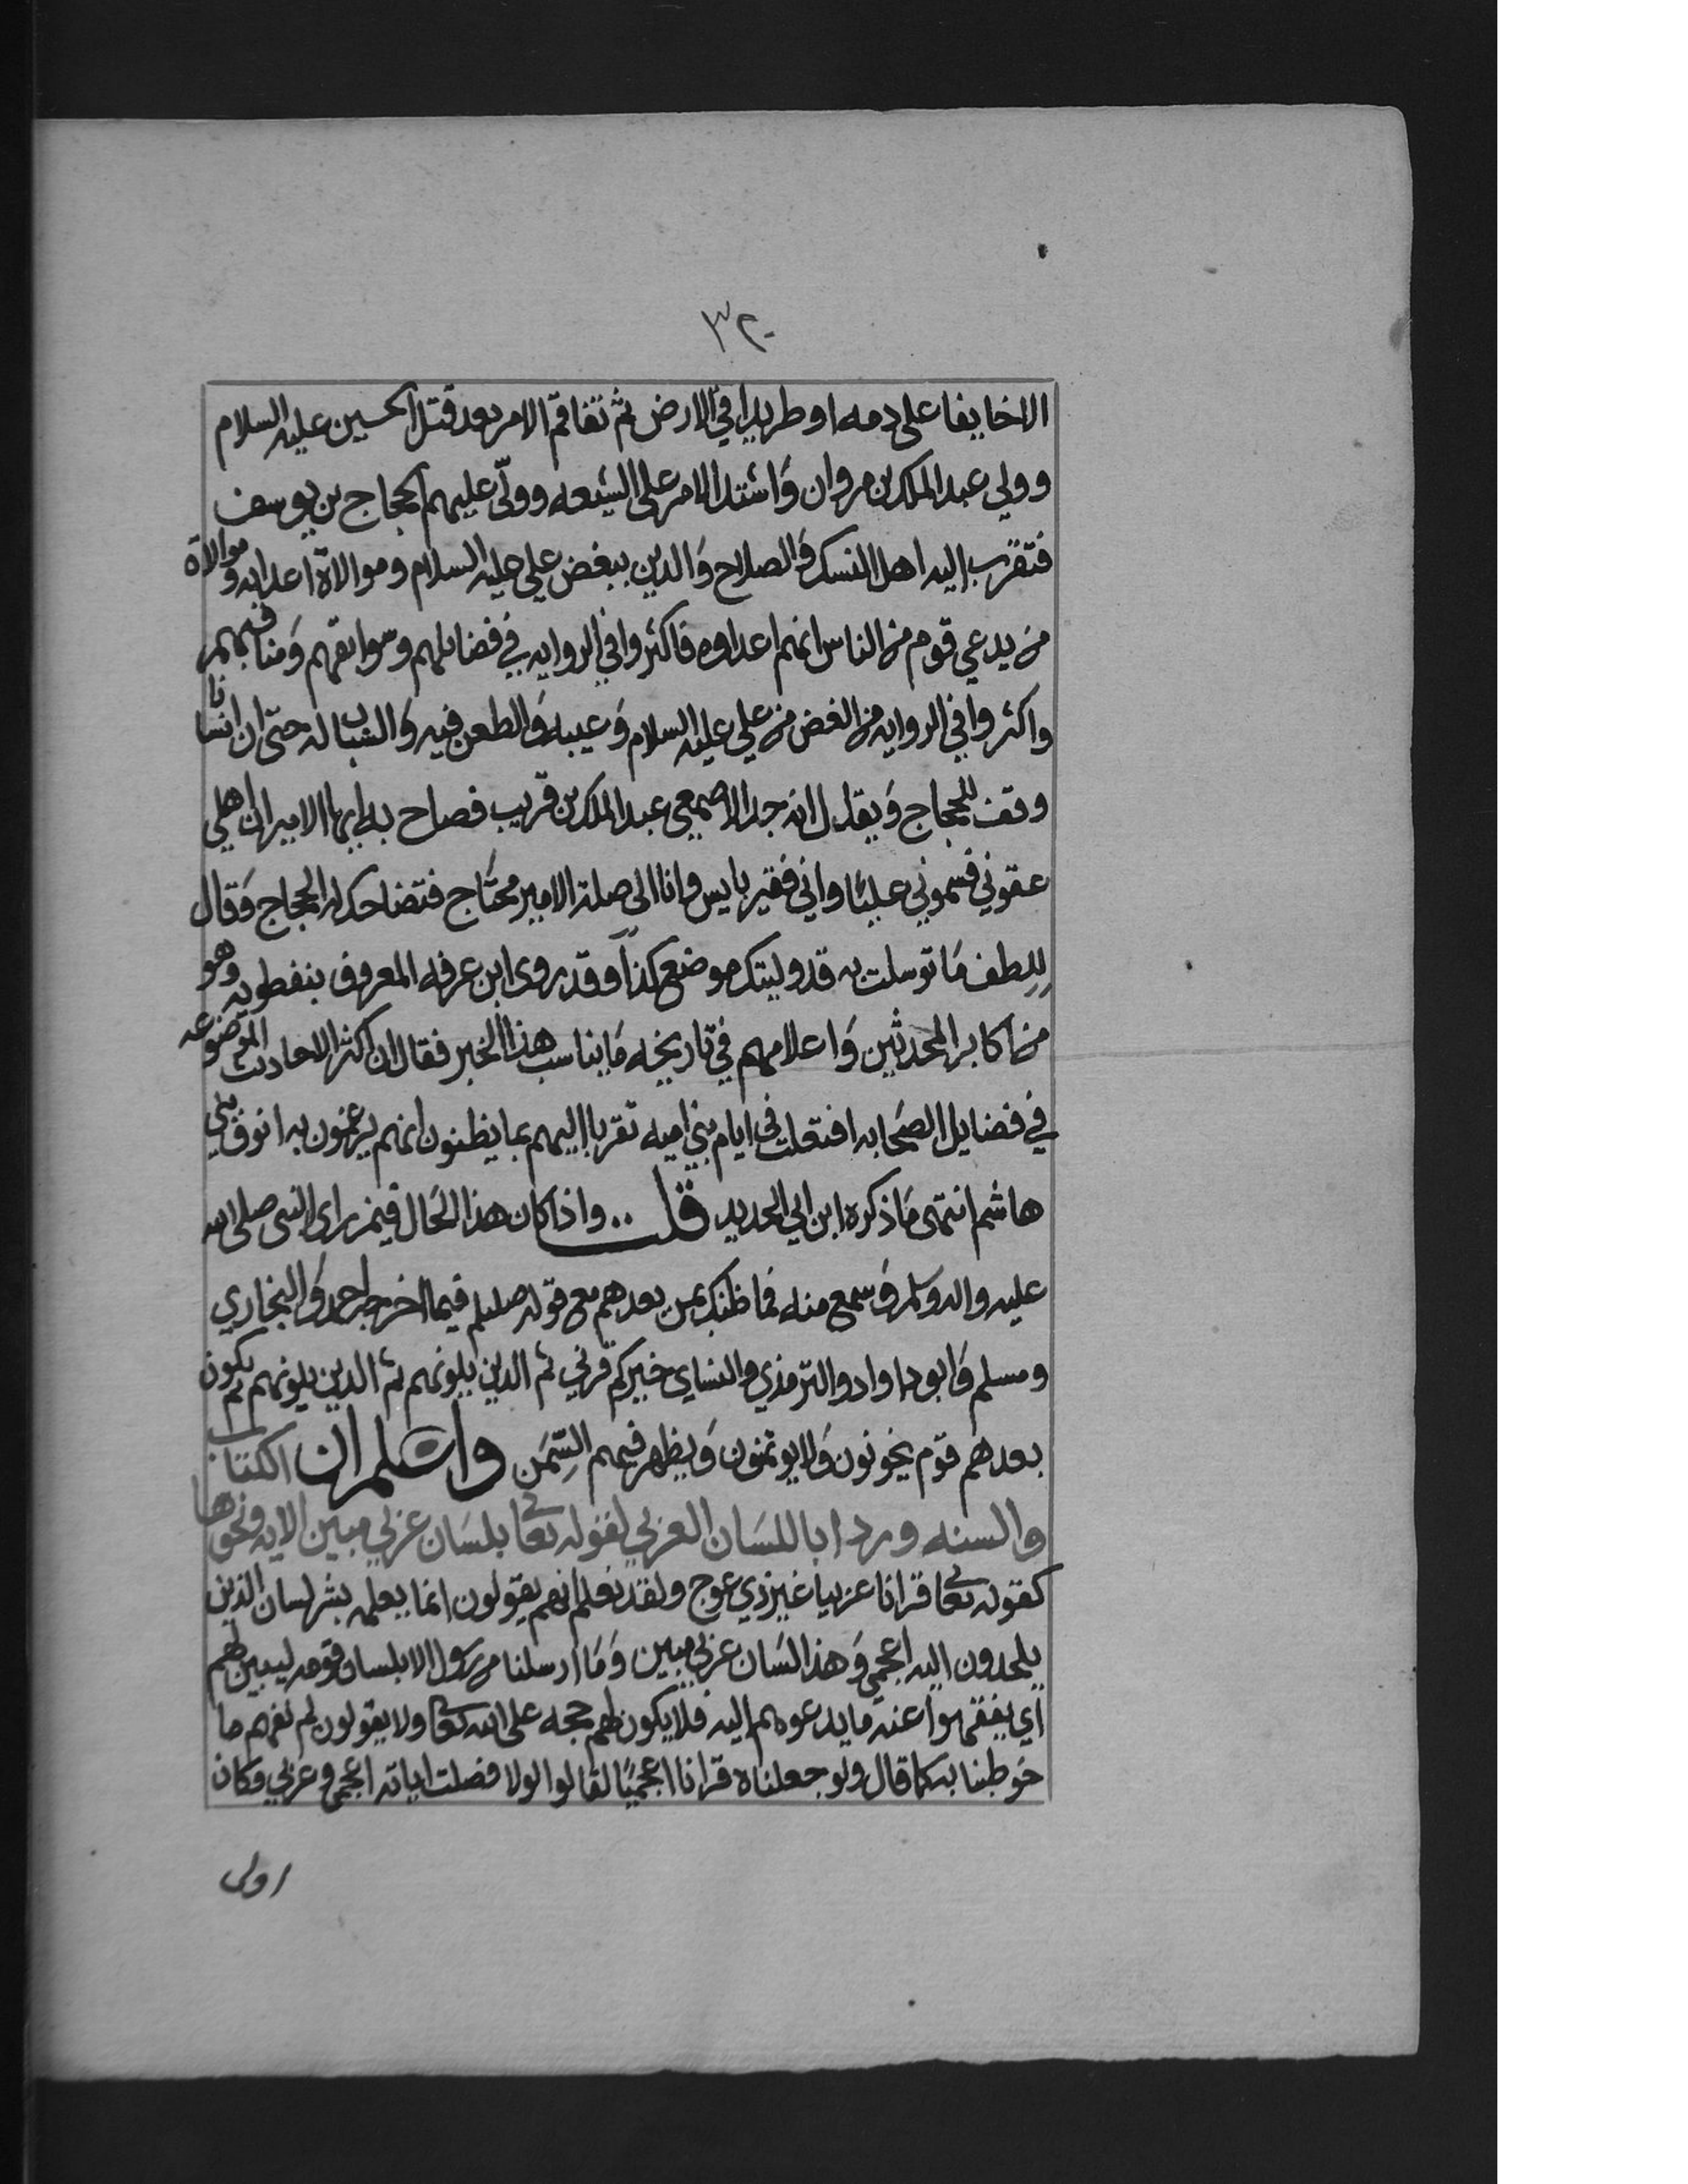 ٣٢٠
الاخايفا على دمه او طريدا في الارض ثم تفاقم الامر بعد قتل الحسين عليه السلام
وولي عبد الملك بن مروان وَاشتد الامر على الشيعه وولّى عليهم الحجاج بن يوسف
فتقرب اليه اهل النسك وَالصلاح وَالدين ببغض علي عليه السلام وموالاة اعدايه وموالاة
من يدعي قوم من الناس انهم اعداوه فاكثروا في الروايه في فضايلهم وسوابقهم وَمناقبهم
واكثروا في الروايه من الغض من علي عليه السلام وَعيبه وَالطعن فيه وَالشبان له حتى ان انسانا
وقف للحجاج وَيقال انه جد الاصمعي عبد الملك بن قريب فصاح به ايها الامير ان اهلي
عقوني فسموني عليًا واني فقير بايس وانا الى صلة الامير محتاج فتضاحك له الحجاج وَقال
للطف مَا توسلت به قد وليتك موضع كذا وقد روى ابن عرفه المعروف بنفطويه وهو
من اكابر المحدثين وَاعلامهم في تاريخه مَا يناسب هذا الخبر فقال ان اكثر الاحاديث الموضوعه
في فضايل الصَحابه افتعلت في ايام بني اميه تقربا اليهم بما يظنون انهم يرغمون به انوف بني
هاشم انتهى مَا ذكره ابن ابي الحديد قلت .. واذا كان هذا الحَال فيمن راى النبي صلى الله
عليه واله وسلم وَسمع منه فما ظنك بمن بعدهم مع قوله صللم فيما اخرجه احمد وَالبخاري
ومسلم وَابو داوادو الترمذي والنساي خيركم قرني ثم الذين يلونهم ثم الذين يلونهم ثم يكون
بعدهم قوم يخونون وَلا يوتمنون وَيظهر فيهم السِّمَن واعلم ان الكتاب
والسنه وردا باللسَان العربي لقوله تعا بلسَان عربي مبين الايه ونحوها
كقوله تعا قرانا عربيا غير ذي عوج ولقد نعلم انهم يقولون انما يعلمه بشر لسان الذين
يلحدون اليه اعجمي وَهذا لسَان عربي مبين وَمَا ارسلنا من رسول الا بلسان قومه ليبين لهم
اي يفقهوا عنه ما يدعوهم اليه فلا يكون لهم حجه على الله تعا ولا يقولون لم نفهم ما
خوطبنا به كما قال ولو جعلناه قرانا اعجميًا لقالوا لولا فصلت اياته اعجمي وعربي فكان
اولى